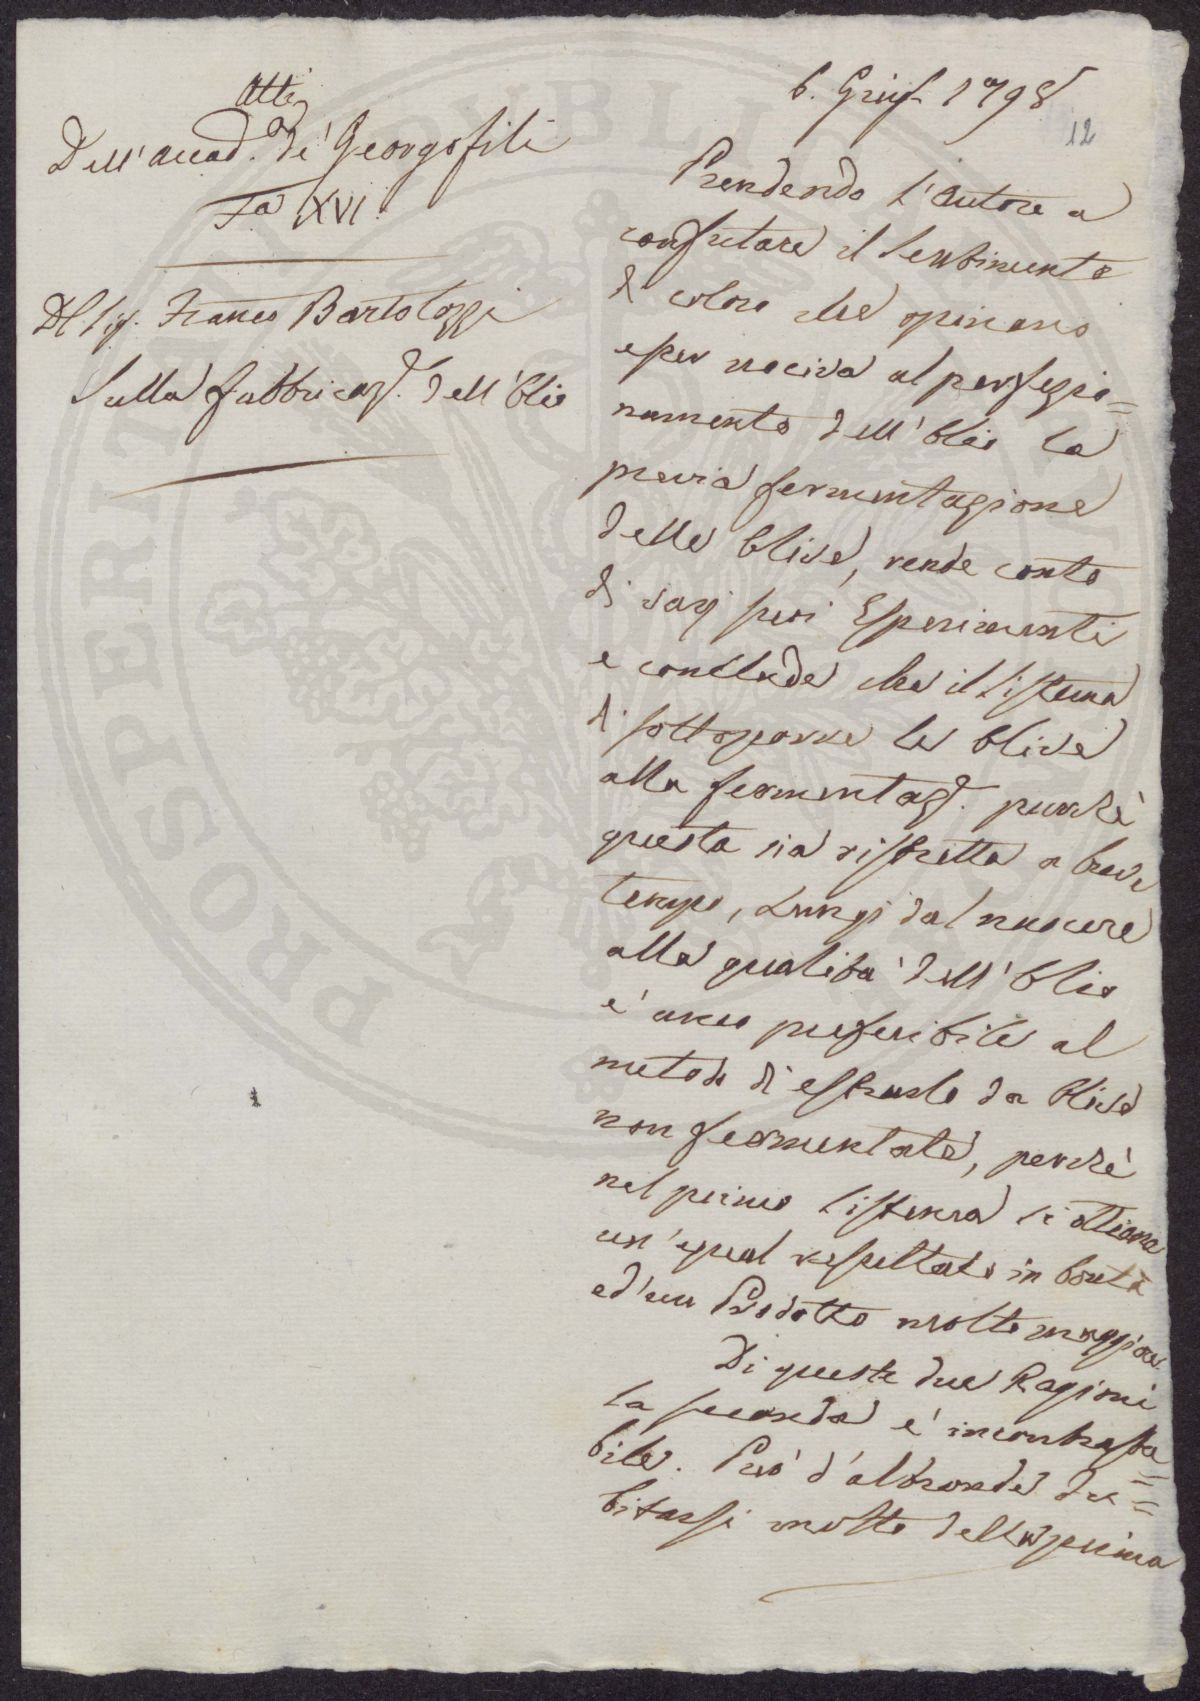 Atti
Dell'Accad.a de' Georgofili
Fa XVI.
Del Sig. Franco Bartolozzi
Sulla fabbricaz.e dell'Olio
6. Giug. 1798
12
Prendendo l'Autore a
confutare il Sentimento
di coloro che opinano
esser nociva al perfezio=
namento dell'Olio la
previa fermentazione
delle Olive, rende conto
di varj suoi Esperimenti
e conclude che il Sistema
di sottoporre le Olive
alla fermentaz.e purchè
questa sia ristretta a breve
tempo, Lungi dal nuocere
alla qualità dell'Olio
e' anco preferibile al
metodo di estrarlo da Olive
non fermentate, perchè
nel primo Sistema si ottiene
un'egual resultato in bontà
ed'un Prodotto molto maggiore.
Di queste due Ragioni
la seconda e' incontrasta=
bile. Può d'altronde du=
bitarsi molto della prima
PROSPERITATI PUBLICAE